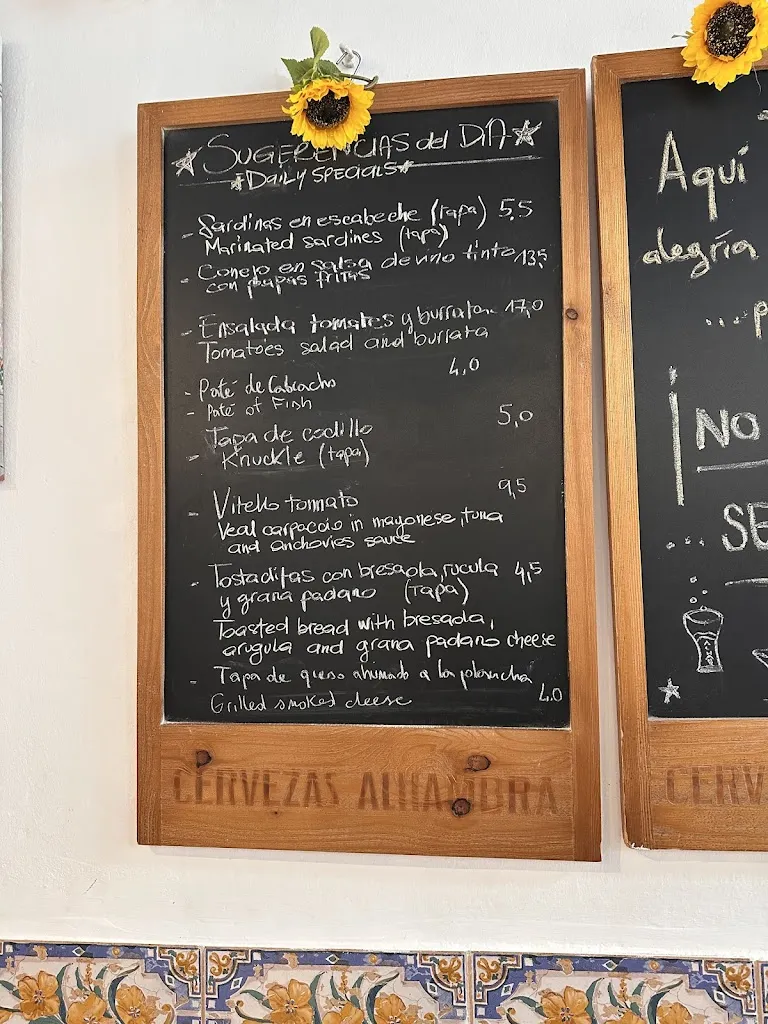 SUGERENCIAS del DÍA
DAILY SPECIALS
- Sardinas en escabeche (tapa) 5,5
Marinated sardines (tapa)
- Conejo en salsa de vino tinto 13,5
con papas fritas
- Ensalada tomates y burrata 17,0
Tomatoes salad and burrata
4,0
- Paté de Cabracho
- Paté of Fish
Tapa de codillo 5,0
- Knuckle (tapa)
- Vitello tonnato 9,5
Veal carpaccio in mayonese, tuna
and anchovies sauce
- Tostaditas con bresaola, rucula 4,5
y grana padano (tapa)
Toasted bread with bresaola,
arugula and grana padano cheese
- Tapa de queso ahumado a la plancha
Grilled smoked cheese 4,0
CERVEZAS ALHAMBRA
Aquí
alegría
...P
¡NO
... SE
CERV